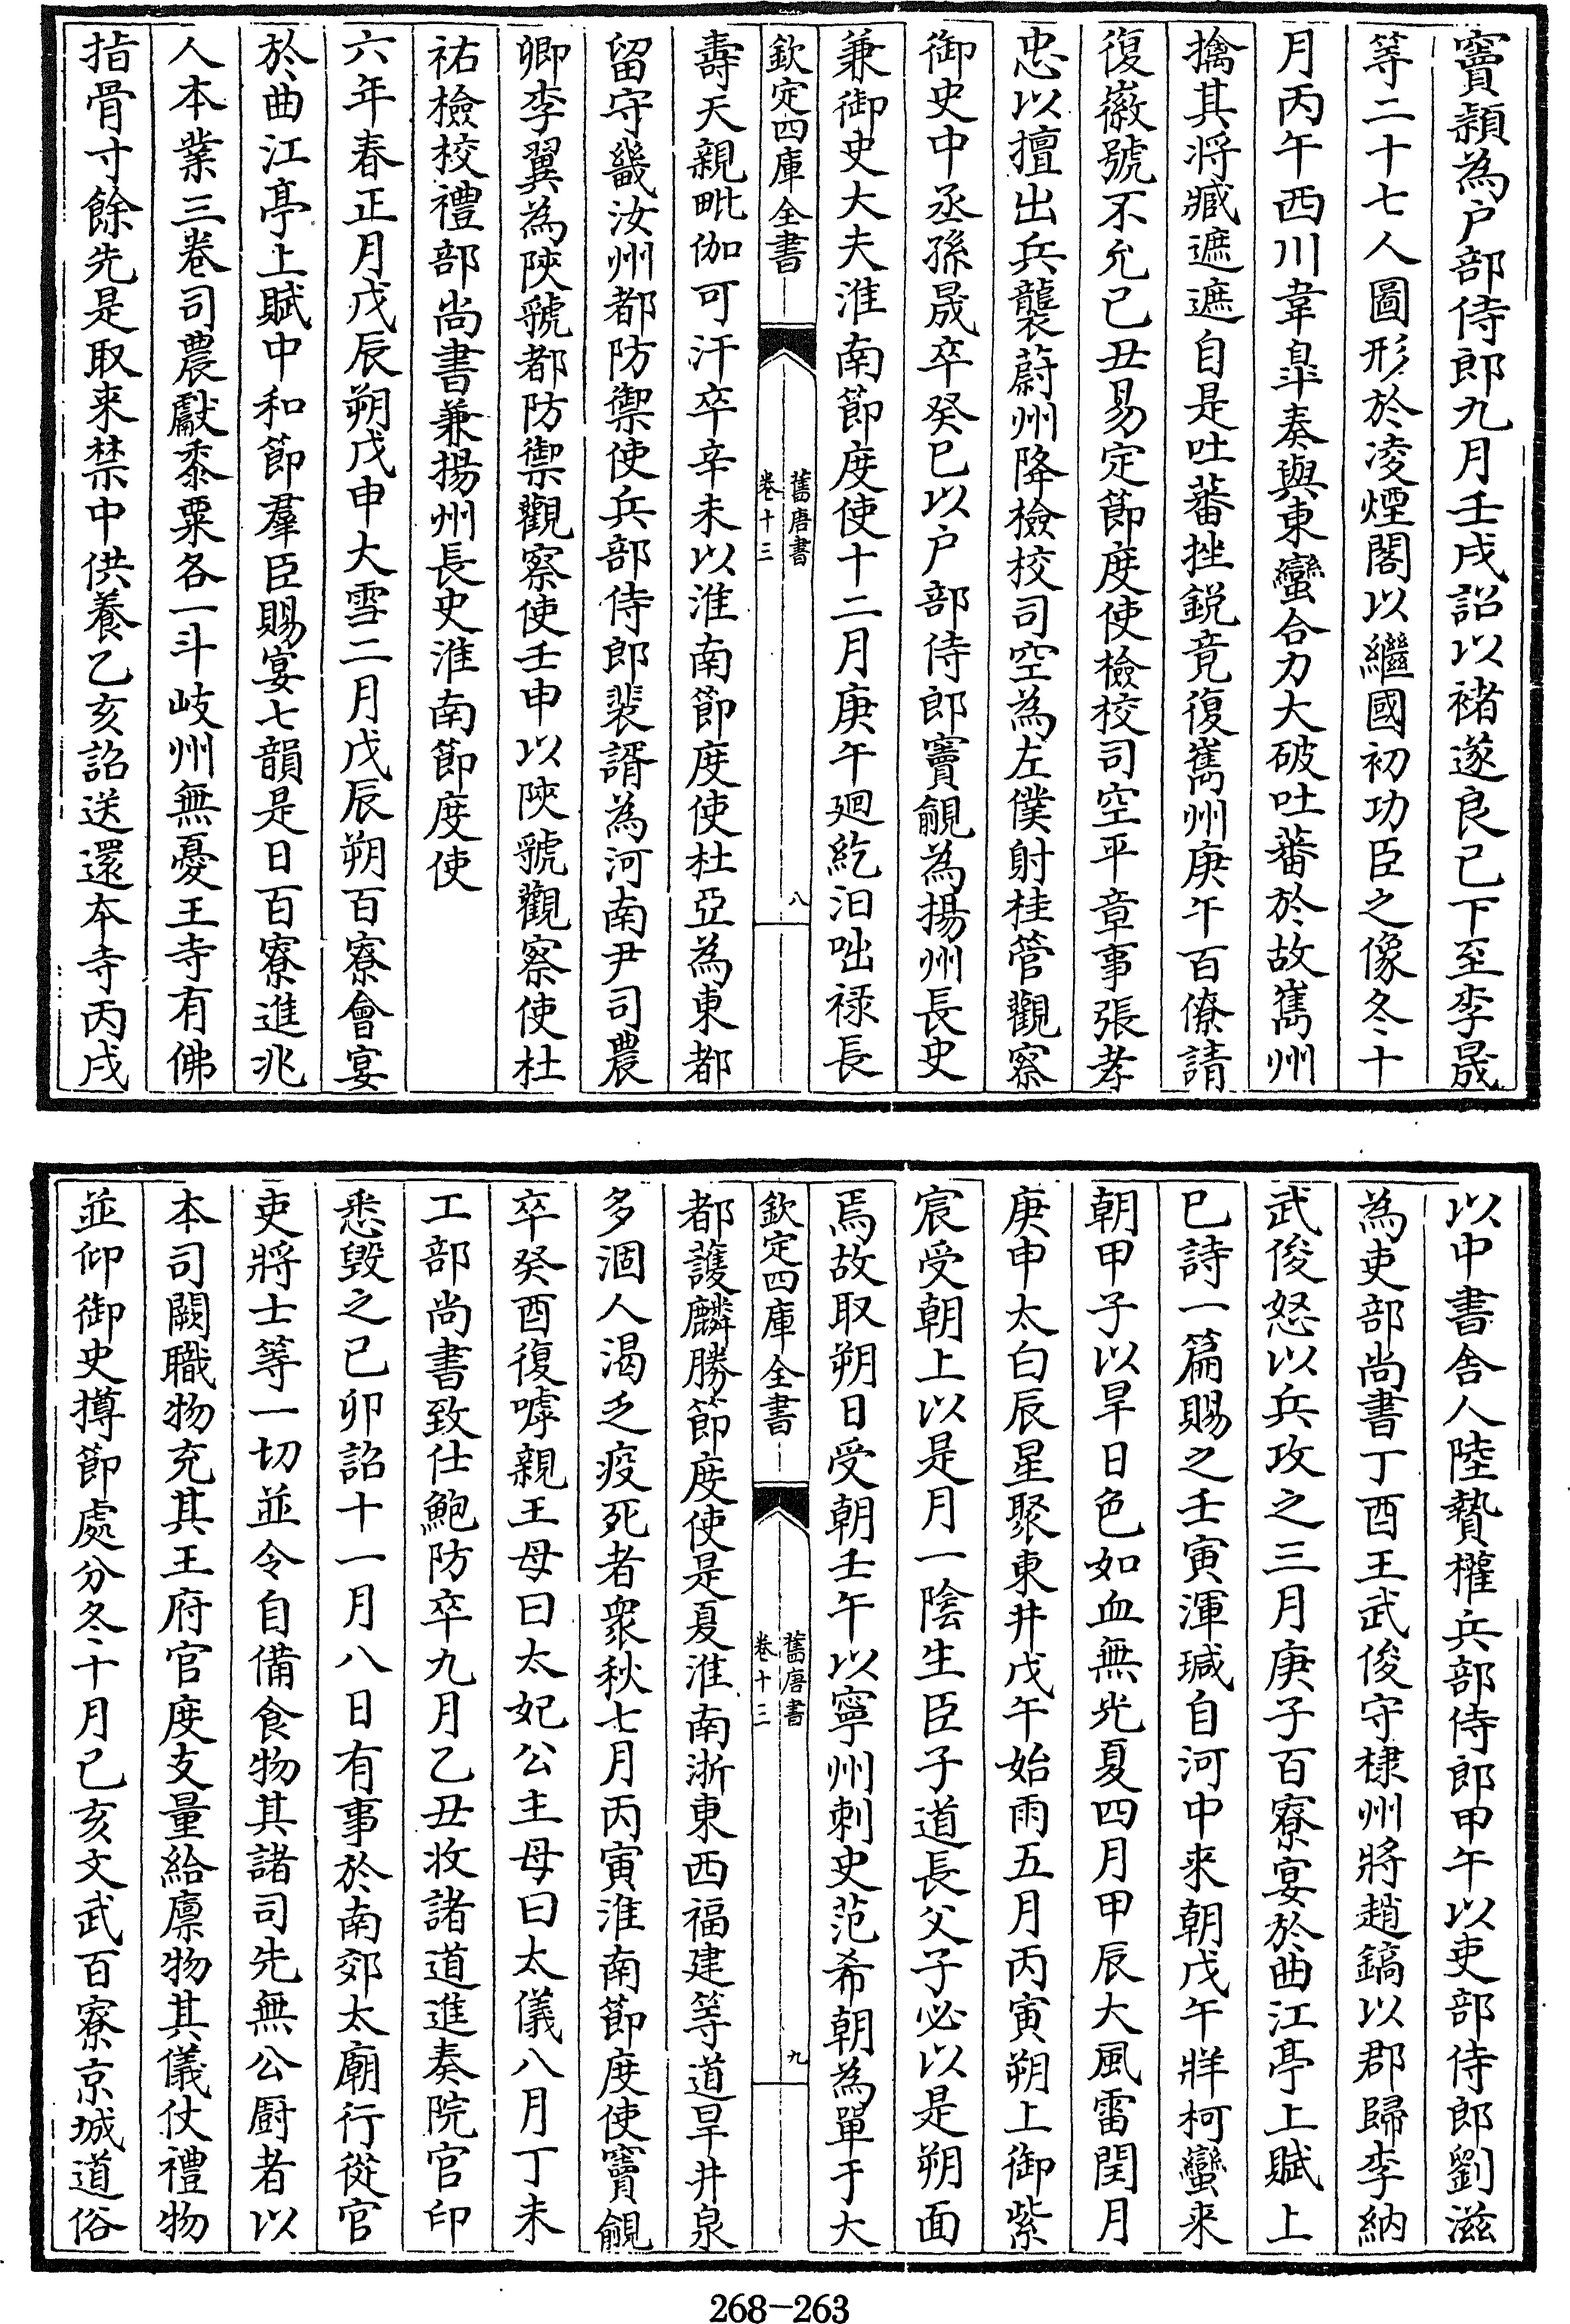 竇覦為户部侍郎九月壬戌詔以褚遂良已下至李晟
等二十七人圖形於凌煙閣以繼國初功臣之像冬十
月丙午西川韋臯奏與東蠻合力大破吐蕃於故嶲州
擒其將臧遮遮自是吐蕃挫鋭竟復嶲州庚午百僚請
復徽號不允己丑易定節度使檢校司空平章事張孝
忠以擅出兵襲蔚州降檢校司空為左僕射桂管觀察
御史中丞孫晟卒癸巳以户部侍郎竇覦為揚州長史
兼御史大夫淮南節度使十二月庚午廻紇汨咄禄長
欽定四庫全書
舊唐書
卷十三
八
壽天親毗伽可汗卒辛未以淮南節度使杜亞為東都
留守畿汝州都防禦使兵部侍郎裴諝為河南尹司農
卿李翼為陜虢都防禦觀察使壬申以陜虢觀察使杜
祐檢校禮部尚書兼揚州長史淮南節度使
六年春正月戊辰朔戊申大雪二月戊辰朔百寮會宴
於曲江亭上賦中和節羣臣賜宴七韻是日百寮進兆
人本業三卷司農獻黍粟各一斗岐州無憂王寺有佛
指骨寸餘先是取来禁中供養乙亥詔送還本寺丙戌
以中書舎人陸贄權兵部侍郎甲午以吏部侍郎劉滋
為吏部尚書丁酉王武俊守棣州將趙鎬以郡歸李納
武俊怒以兵攻之三月庚子百寮宴於曲江亭上賦上
巳詩一篇賜之壬寅渾瑊自河中来朝戊午牂柯蠻来
朝甲子以旱日色如血無光夏四月甲辰大風雷閏月
庚申太白辰星聚東井戊午始雨五月丙寅朔上御紫
宸受朝上以是月一陰生臣子道長父子必以是朔面
焉故取朔日受朝壬午以寧州刺史范希朝為單于大
欽定四庫全書
舊唐書
卷十三
九
都護麟勝節度使是夏淮南浙東西福建等道旱井泉
多涸人渴乏疫死者衆秋七月丙寅淮南節度使竇覦
卒癸酉復嘑親王母曰太妃公主母曰太儀八月丁未
工部尚書致仕鮑防卒九月乙丑收諸道進奏院官印
悉毁之己卯詔十一月八日有事於南郊太廟行從官
吏將士等一切並令自備食物其諸司先無公厨者以
本司闕職物充其王府官度支量給廪物其儀仗禮物
並仰御史撙節處分冬十月己亥文武百寮京城道俗
268-263